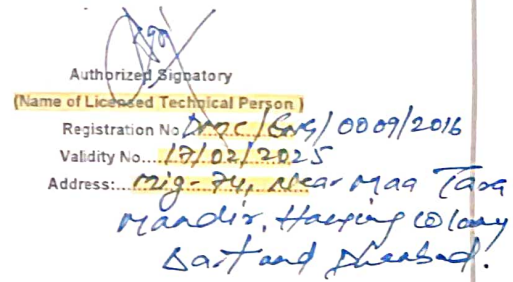 Authorized Signatory
(Name of Licensed Technical Person )
Registration No DMC/Eng/0009/2016
Validity No....17/02/2025
Address:...Mig-74, Near Maa Tara
Mandir, Housing Colony
and Dhanbad.